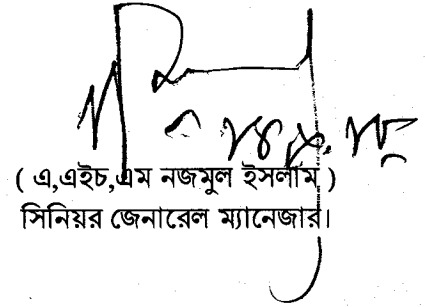 ( এ,এইচ,এম নজমুল ইসলাম )
সিনিয়র জেনারেল ম্যানেজার।